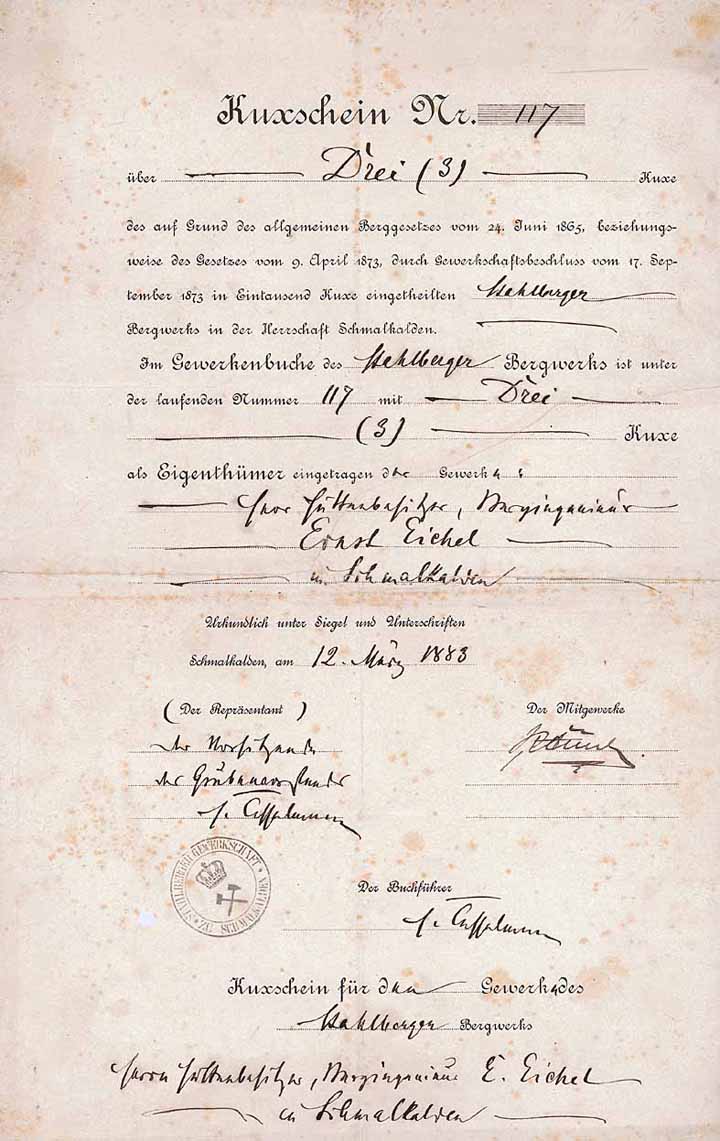 Kuxschein Nr. 117
über Drei (3) Kuxe
des auf Grund des allgemeinen Berggesetzes vom 24. Juni 1865, beziehungs-
weise des Gesetzes vom 9. April 1873, durch Gewerkschaftsbeschluss vom 17. Sep-
tember 1873 in Eintausend Kuxe eingetheilten Stahlberger
Bergwerks in der Herrschaft Schmalkalden.
Im Gewerkenbuche des Stahlberger Bergwerks ist unter
der laufenden Nummer 117 mit Drei
(3) Kuxe
als Eigenthümer eingetragen der Gewerke:
Herr Hüttenbesitzer, Bergingenieur
Ernst Eichel
in Schmalkalden
Urkundlich unter Siegel und Unterschriften
Schmalkalden, am 12. März 1883
(Der Repräsentant) Der Mitgewerke
der Vorsitzende
des Grubenvorstandes
STAHLBERGER GEWERKSCHAFT
Der Buchführer
Kuxschein für den Gewerken des
Stahlberger Bergwerks
Herrn Hüttenbesitzer, Bergingenieur E. Eichel
in Schmalkalden